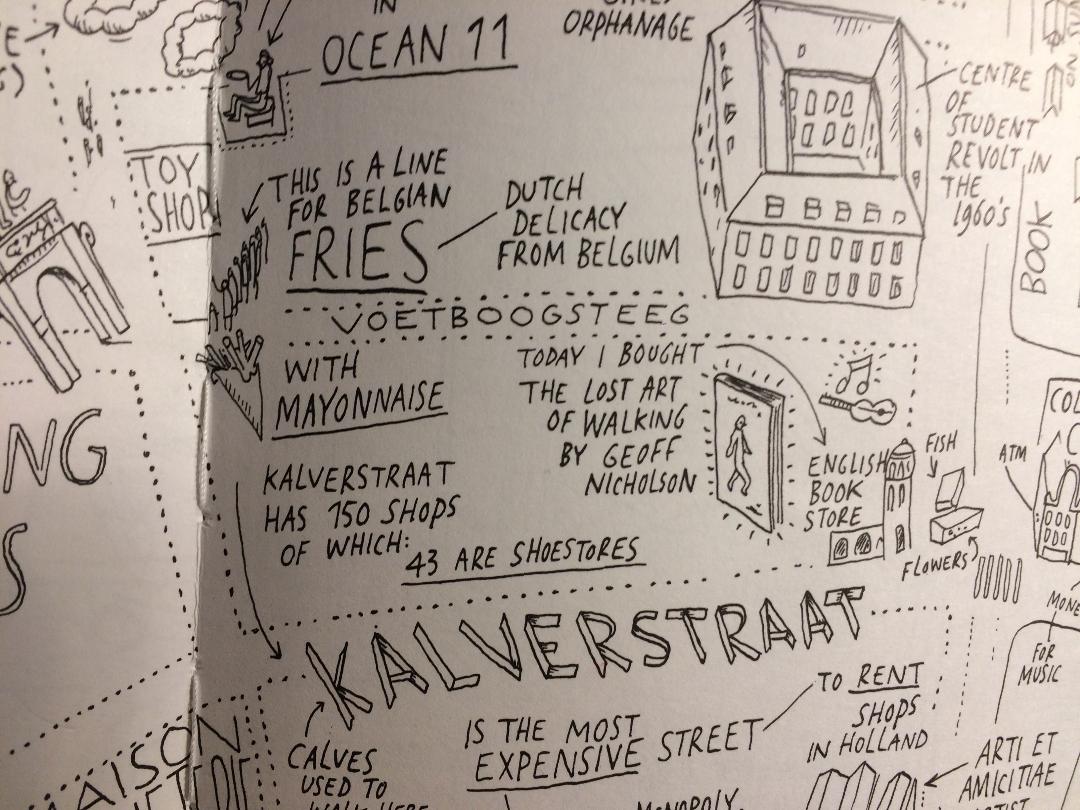 IN
OCEAN 11
ORPHANAGE
CENTRE
OF
STUDENT
REVOLT, IN
THE
1960'S
TOY
SHOP
THIS IS A LINE
FOR BELGIAN
FRIES
DUTCH
DELICACY
FROM BELGIUM
BOOK
VOETBOOGSTEEG
WITH
MAYONNAISE
TODAY I BOUGHT
THE LOST ART
OF WALKING
BY GEOFF
NICHOLSON
ENGLISH
BOOK
STORE
FISH
FLOWERS
ATM
COL
NG
S
KALVERSTRAAT
HAS 150 SHOPS
OF WHICH:
43 ARE SHOESTORES
KALVERSTRAAT
MONE
FOR
MUSIC
CALVES
USED TO
WALK HERE
IS THE MOST
EXPENSIVE STREET
TO RENT
SHOPS
IN HOLLAND
ARTI ET
AMICITIAE
MONOPOLY
MAISON